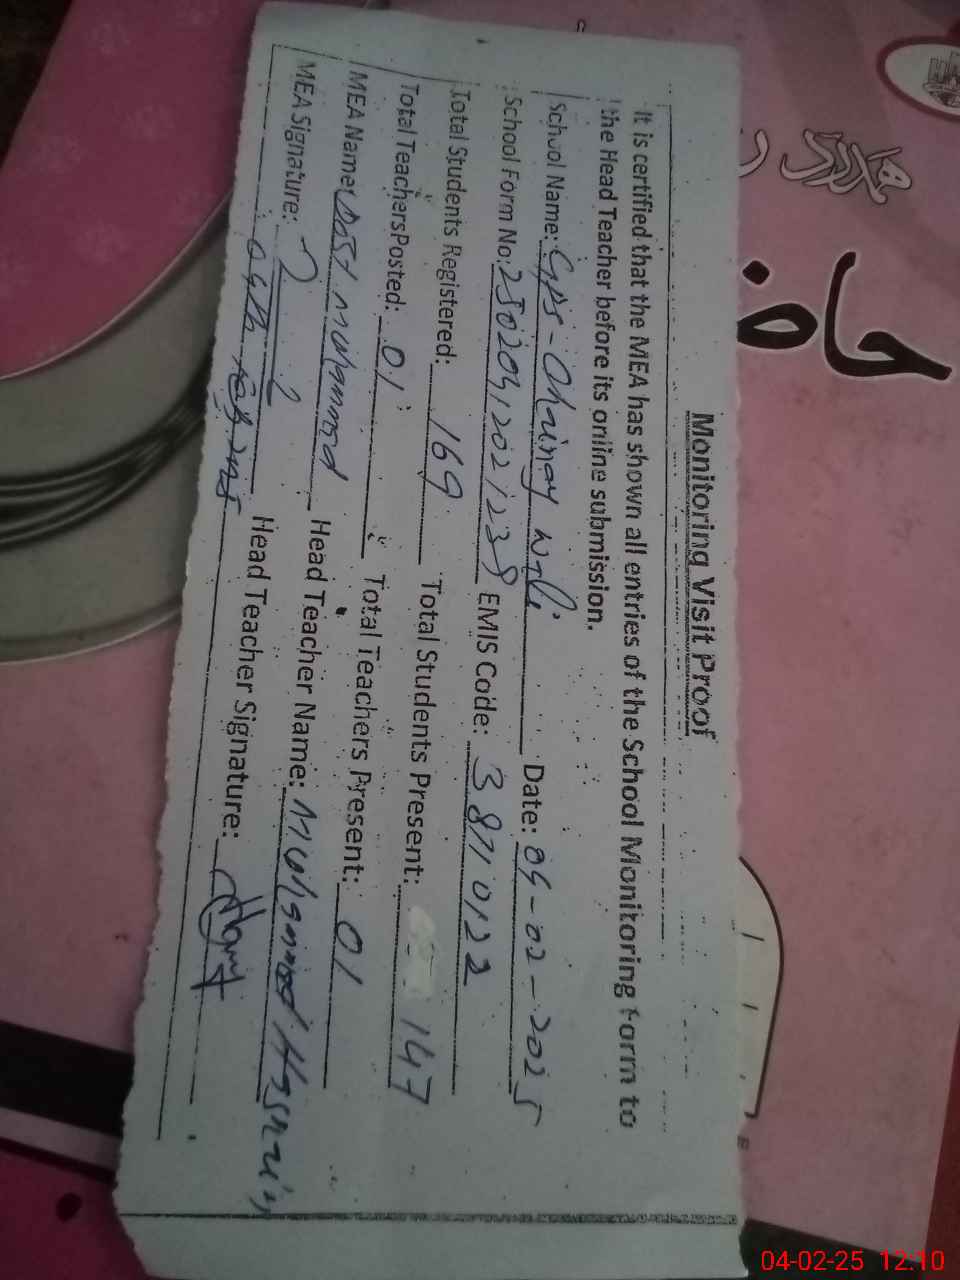 Monitoring Visit Proof
It is certified that the MEA has shown all entries of the School Monitoring Form to
the Head Teacher before its online submission.
School Name: GPS - Date: 04-02-2025
School Form No: EMIS Code: 38710122
Total Students Registered: 169 Total Students Present: 147
Total Teachers Posted: 01 Total Teachers Present: 01
MEA Name: Dost Muhammad Head Teacher Name: Muhammad Hasnain
MEA Signature: Head Teacher Signature:
04th Feb 2025
حاف
04-02-25 12:10